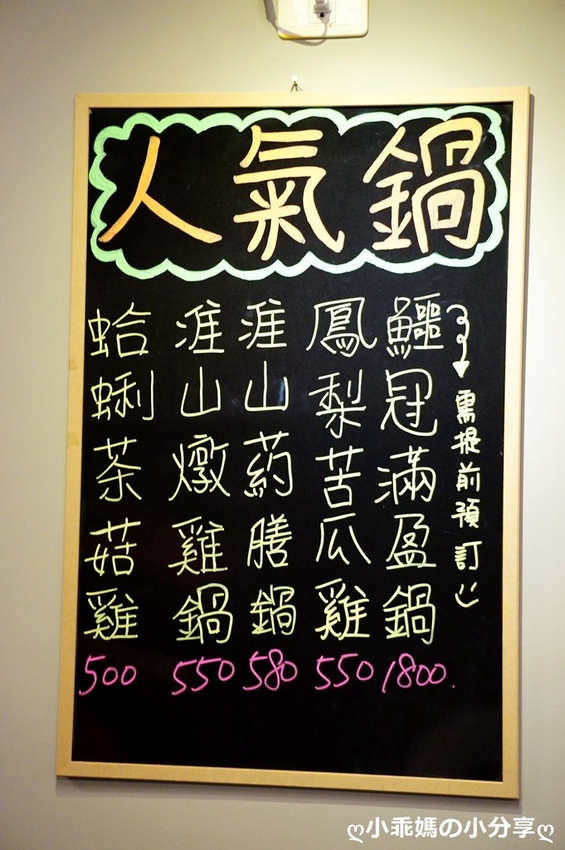 人氣鍋
需提前預訂
鱷冠滿盈鍋
1800.
鳳梨苦瓜雞
550
淮山葯膳鍋
580
淮山燉雞鍋
550
蛤蜊茶菇雞
500
ღ小乖媽の小分享ღ